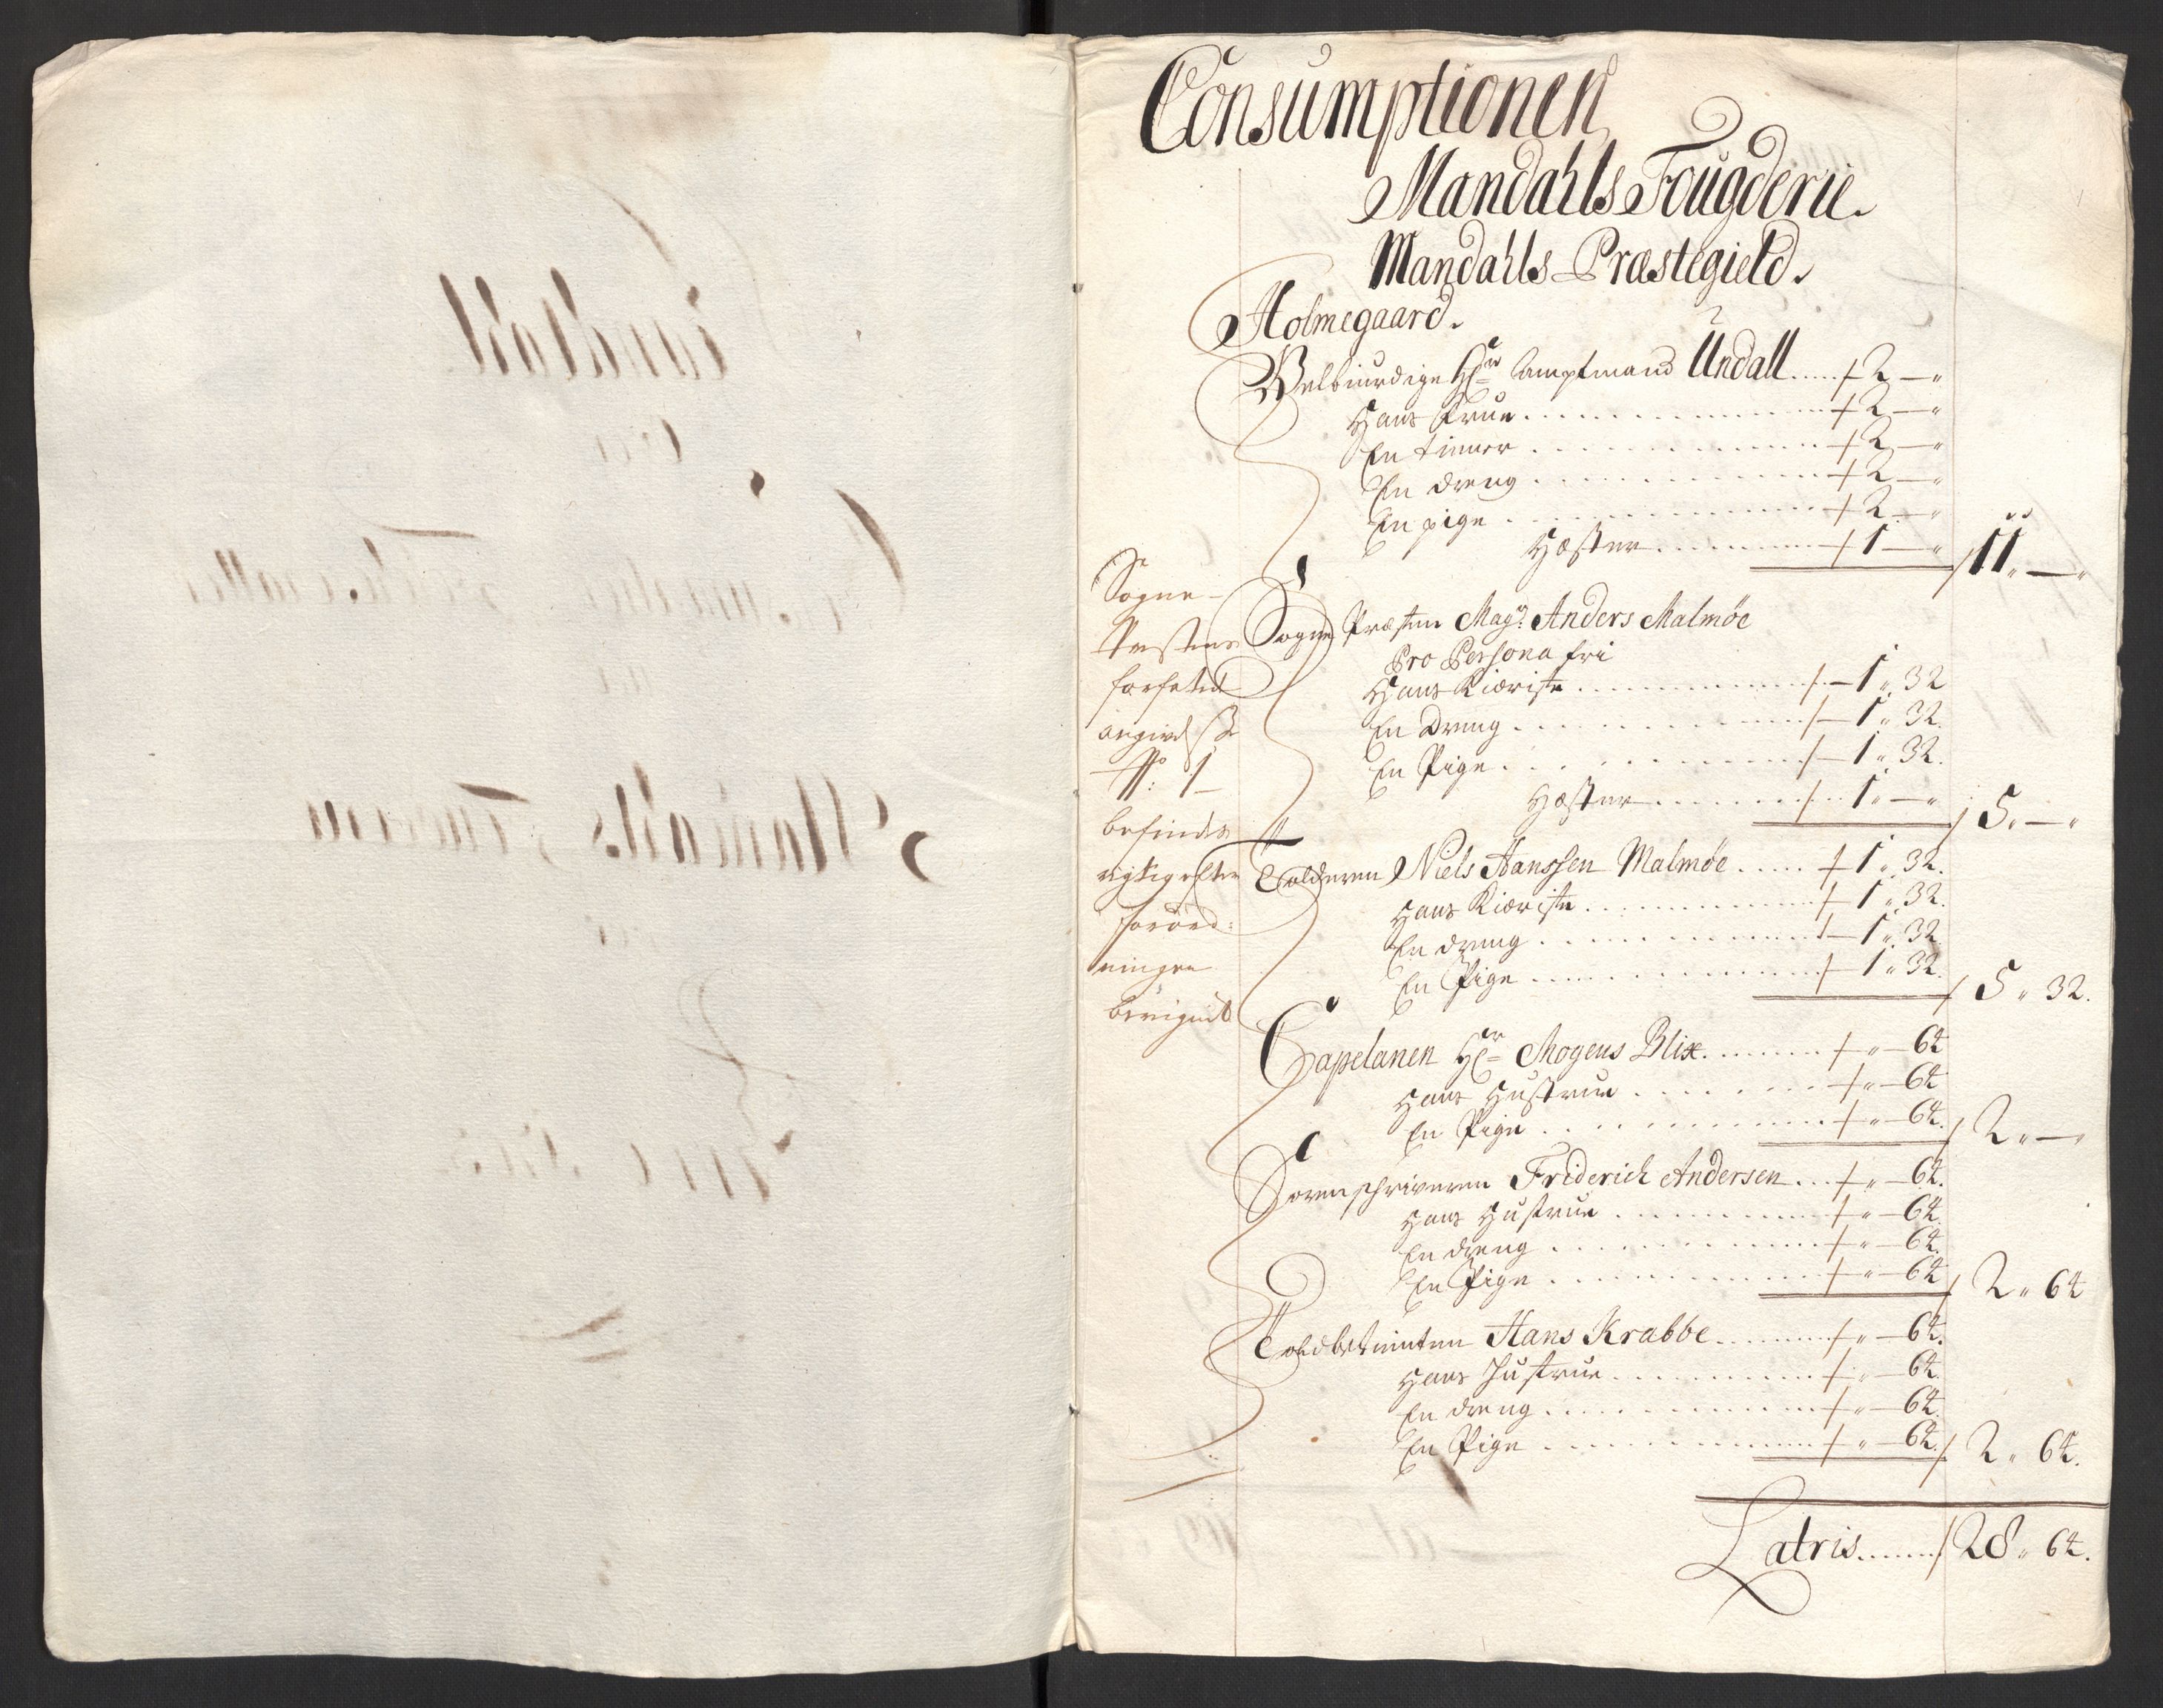 Consumptionen
Mandahls Fougderie.
Mandahls Præstegield.
Holmegaard.
Welbiurdige Hr Ampfmand Undall ..... 2 — "
Hans Frue ..... 2 — "
En tiener ..... 2 — "
En dreng ..... 2 — "
En pige ..... 2 — "
Hæster ..... 1 — " 11 " — "
Sogne Præsten Magr Anders Malmöe
Pro Persona fri
Hans Kiæriste ..... 1 " 32
En Dreng ..... 1 " 32.
En Pige ..... 1 " 32.
Hæster ..... 1 " — " 5 " — "
Tolderen Niels Hanssen Malmöe ..... 1 " 32.
Hans Kiæriste ..... 1 " 32.
En dreng ..... 1 " 32
En Pige ..... 1 " 32. 5 " 32.
Capelanen Hr Mogens Blix ..... " — 64
Hans Hustrue ..... " — 64
En Pige ..... " — 64. 2 " — "
Sorenschriveren Friderich Andersen ... " — 64.
Hans Hustrue ..... " — 64.
En dreng ..... " — 64.
En Pige ..... " — 64 2 " 64
Toldbetienten Hans Krabbe ..... " — 64.
Hans Hustrue ..... " — 64.
En dreng ..... " — 64.
En Pige ..... " — 64. 2 " 64.
Latris ..... 28 " 64.
Sogne-
Præstens
forfatted
angivelse
No: 1
befindes
rigtig efter
forord:
ningen
beregned